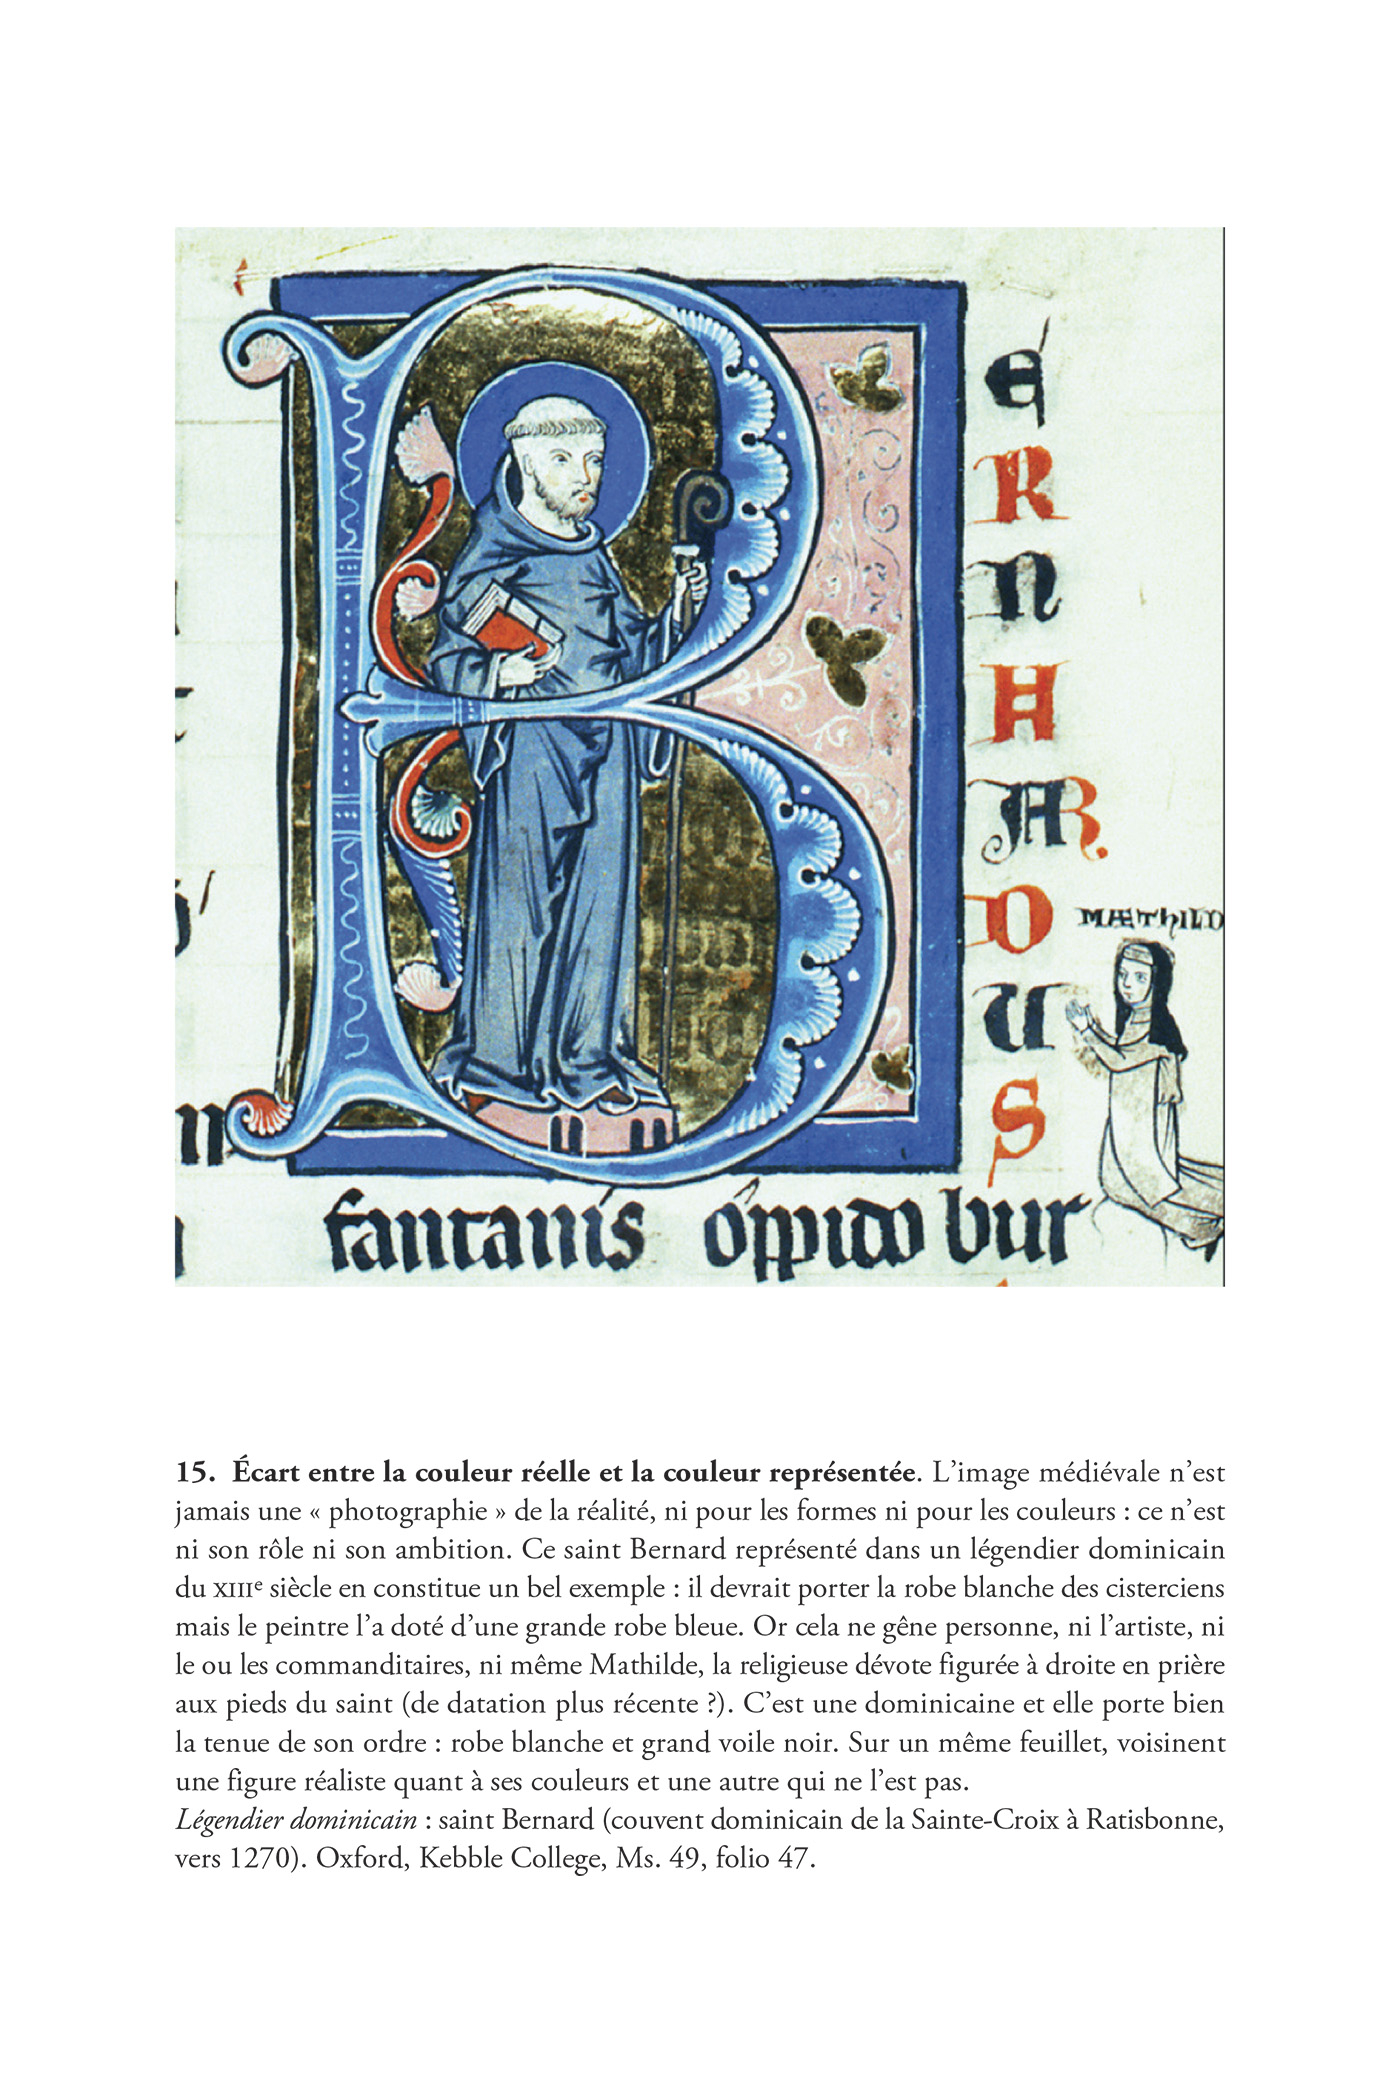 B
E
R
N
H
AR
D
U
S
MÆTHILD
fantanis oppido bur
15. Écart entre la couleur réelle et la couleur représentée. L’image médiévale n’est
jamais une « photographie » de la réalité, ni pour les formes ni pour les couleurs : ce n’est
ni son rôle ni son ambition. Ce saint Bernard représenté dans un légendier dominicain
du XIIIe siècle en constitue un bel exemple : il devrait porter la robe blanche des cisterciens
mais le peintre l’a doté d’une grande robe bleue. Or cela ne gêne personne, ni l’artiste, ni
le ou les commanditaires, ni même Mathilde, la religieuse dévote figurée à droite en prière
aux pieds du saint (de datation plus récente ?). C’est une dominicaine et elle porte bien
la tenue de son ordre : robe blanche et grand voile noir. Sur un même feuillet, voisinent
une figure réaliste quant à ses couleurs et une autre qui ne l’est pas.
Légendier dominicain : saint Bernard (couvent dominicain de la Sainte-Croix à Ratisbonne,
vers 1270). Oxford, Kebble College, Ms. 49, folio 47.